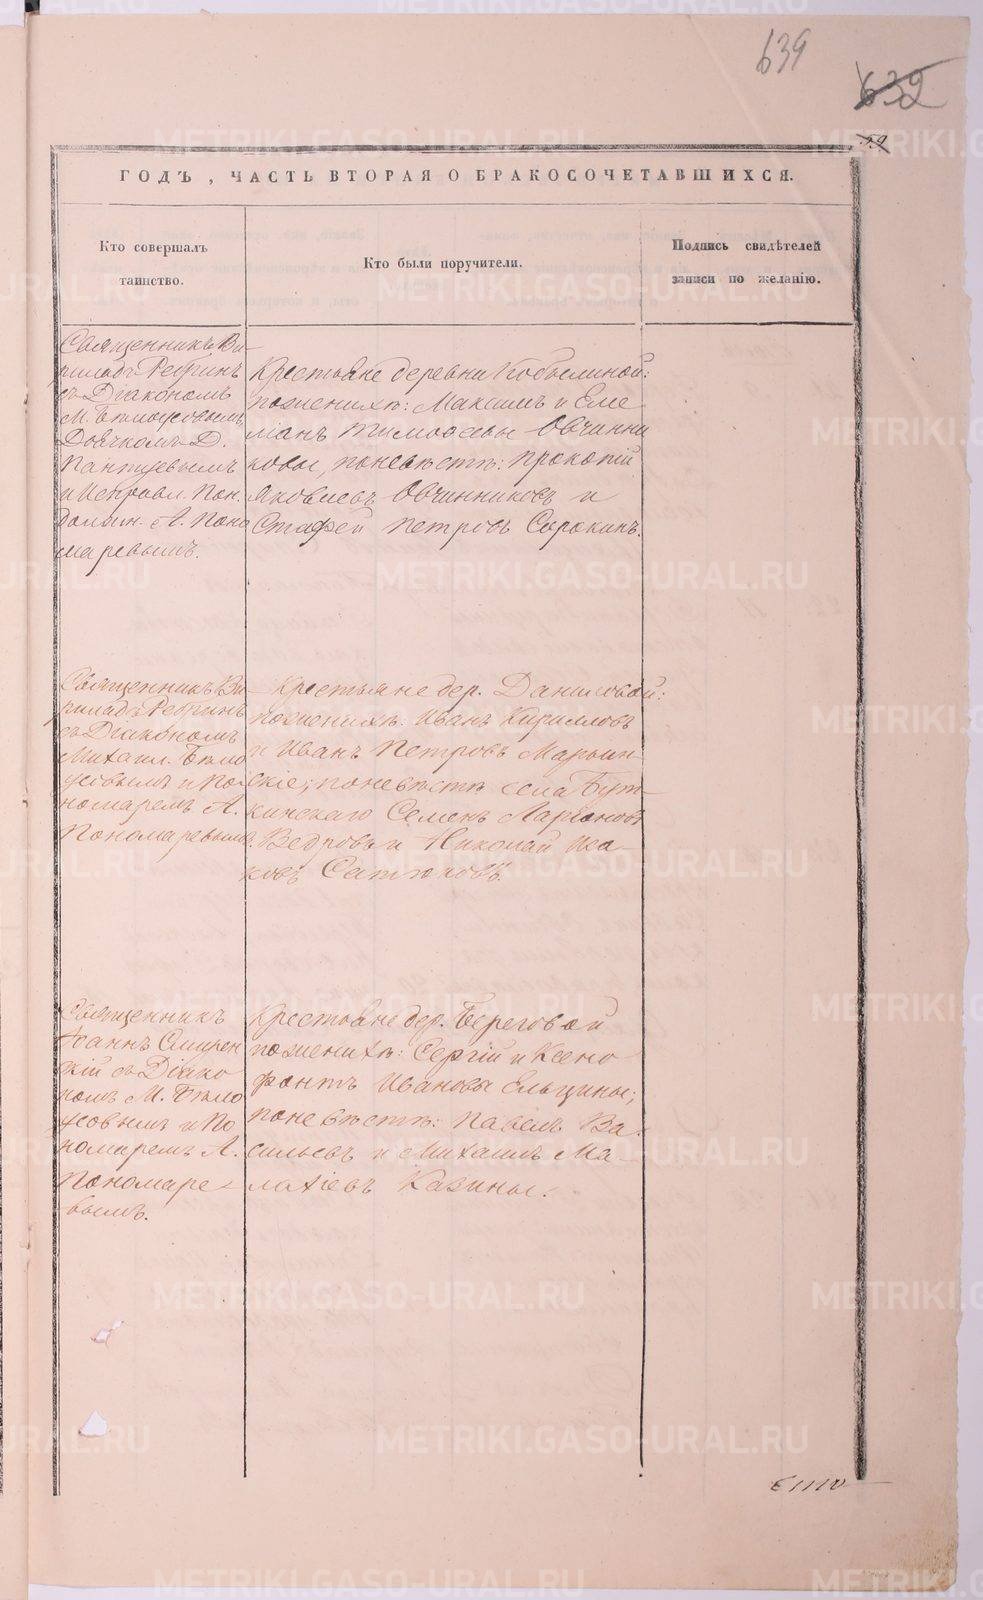 639
632
59
ГОДЪ, ЧАСТЬ ВТОРАЯ О БРАКОСОЧЕТАВШИХСЯ.
Кто совершалъ
таинство.
Кто были поручители.
Подпись свидѣтелей
записи по желанію.
Священникъ Ви
риладъ Ребринъ
съ Діакономъ
М. Бѣлоусовымъ
Дьячкомъ Д.
Пантуевымъ
и Исправл. Пон.
должн. А. Поно
маревымъ.
Крестьяне деревни Кобылиной:
по женихѣ: Максимъ и Еме
ліанъ Тимоѳевы Овчинни
ковы, по невѣстѣ: Прокопій
Яковлевъ Овчинниковъ и
Стафей Петровъ Сорокинъ.
Священникъ Ви
риладъ Ребринъ
съ Діакономъ
Михаил. Бѣло
усовымъ и По
номаремъ А.
Пономаревымъ
Крестьяне дер. Даниловой:
по женихѣ: Иванъ Кириловъ
и Иванъ Петровъ Марьин
скіе; по невѣстѣ села Бут
кинскаго Семенъ Ларіоновъ
Ведровъ и Николай Иса
ковъ
Священникъ
Іоаннъ Смирен
скій съ Діако
номъ М. Бѣло
усовымъ и По
номаремъ А.
Пономаре
вымъ.
Крестьяне дер. Береговой
по женихѣ: Сергій и Ксено
фонтъ Ивановы Ельцины;
по невѣстѣ: Павелъ Ва
сильевъ и Михаилъ Ма
лахіевъ Казины.
METRIKI.GASO-URAL.RU